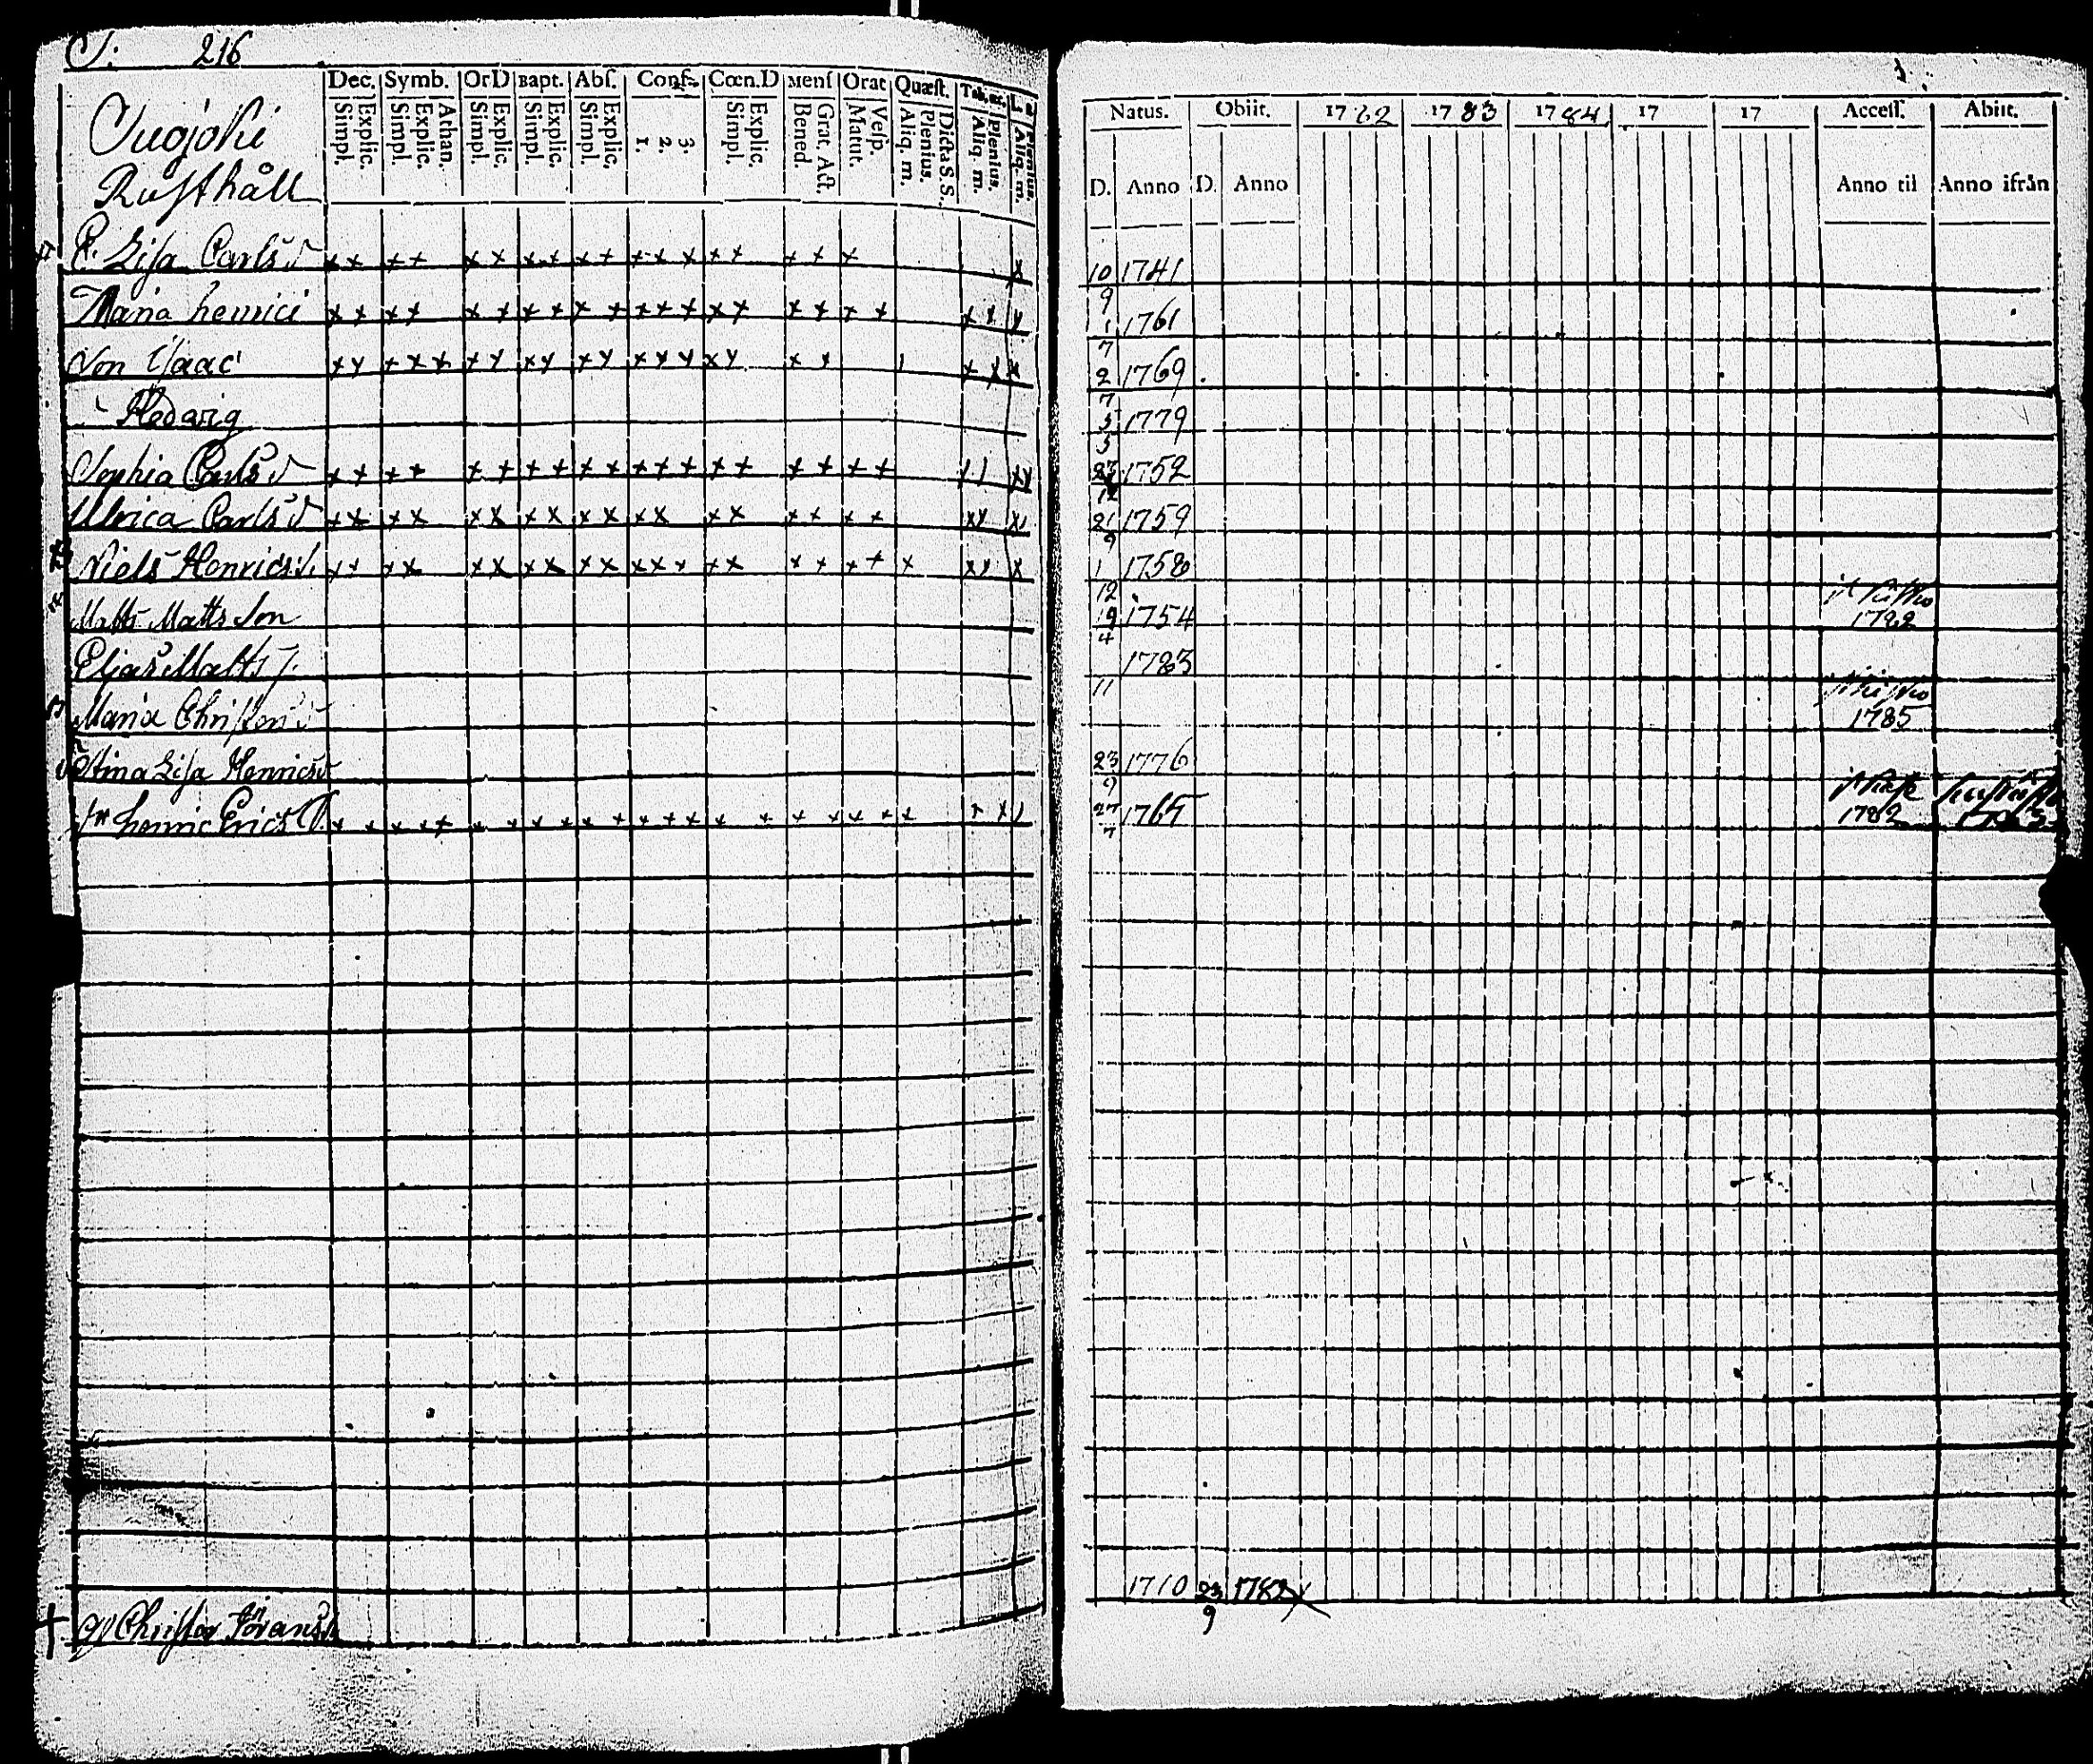 S: 216
Dec. Symb. OrD Bapt. Abſ. Conf. Cœn.D Menſ Orat Quæſt.
Simpl. Explic. Simpl. Explic. Athan. Simpl. Explic. Simpl. Explic. Simpl. Explic. 1. 2. 3. Simpl. Explic. Bened. Grat. Act. Matut. Veſp. Aliq. m. Plenius. Dicta S. S. Aliq. m. Plenius. Aliq. m. Plenius.
Rusthåll
Lisa Carls d
Maria Henrici
Son Isaac
Hedwig
Sophia Carls d
Ulrica Carls d
Niels Henrics s.
Matts Matts son
Elias Matts
Maria Christers d
Stina Lisa Henrics d
Henric Erics
Christer Görans
Natus. Obiit. 1782 1783 1784 17 17 Acceſſ. Abiit.
D. Anno D. Anno Anno til Anno ifrån
10/9 1741
1/7 1761
2/7 1769
5/5 1779
23/12 1752
21/9 1759
1/12 1758
19/4 1754 1782
11 1783
1785
23/9 1776
27/7 1765 1782 1783
1710 23/9 1782